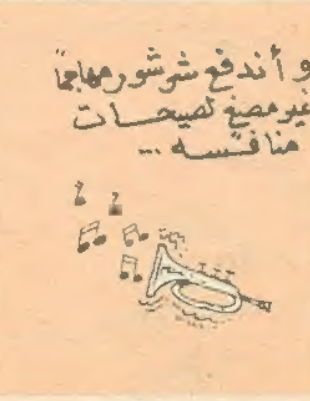 و أندفع شرشور مهاجماً
غير مصغ لصيحات
منافسه ...